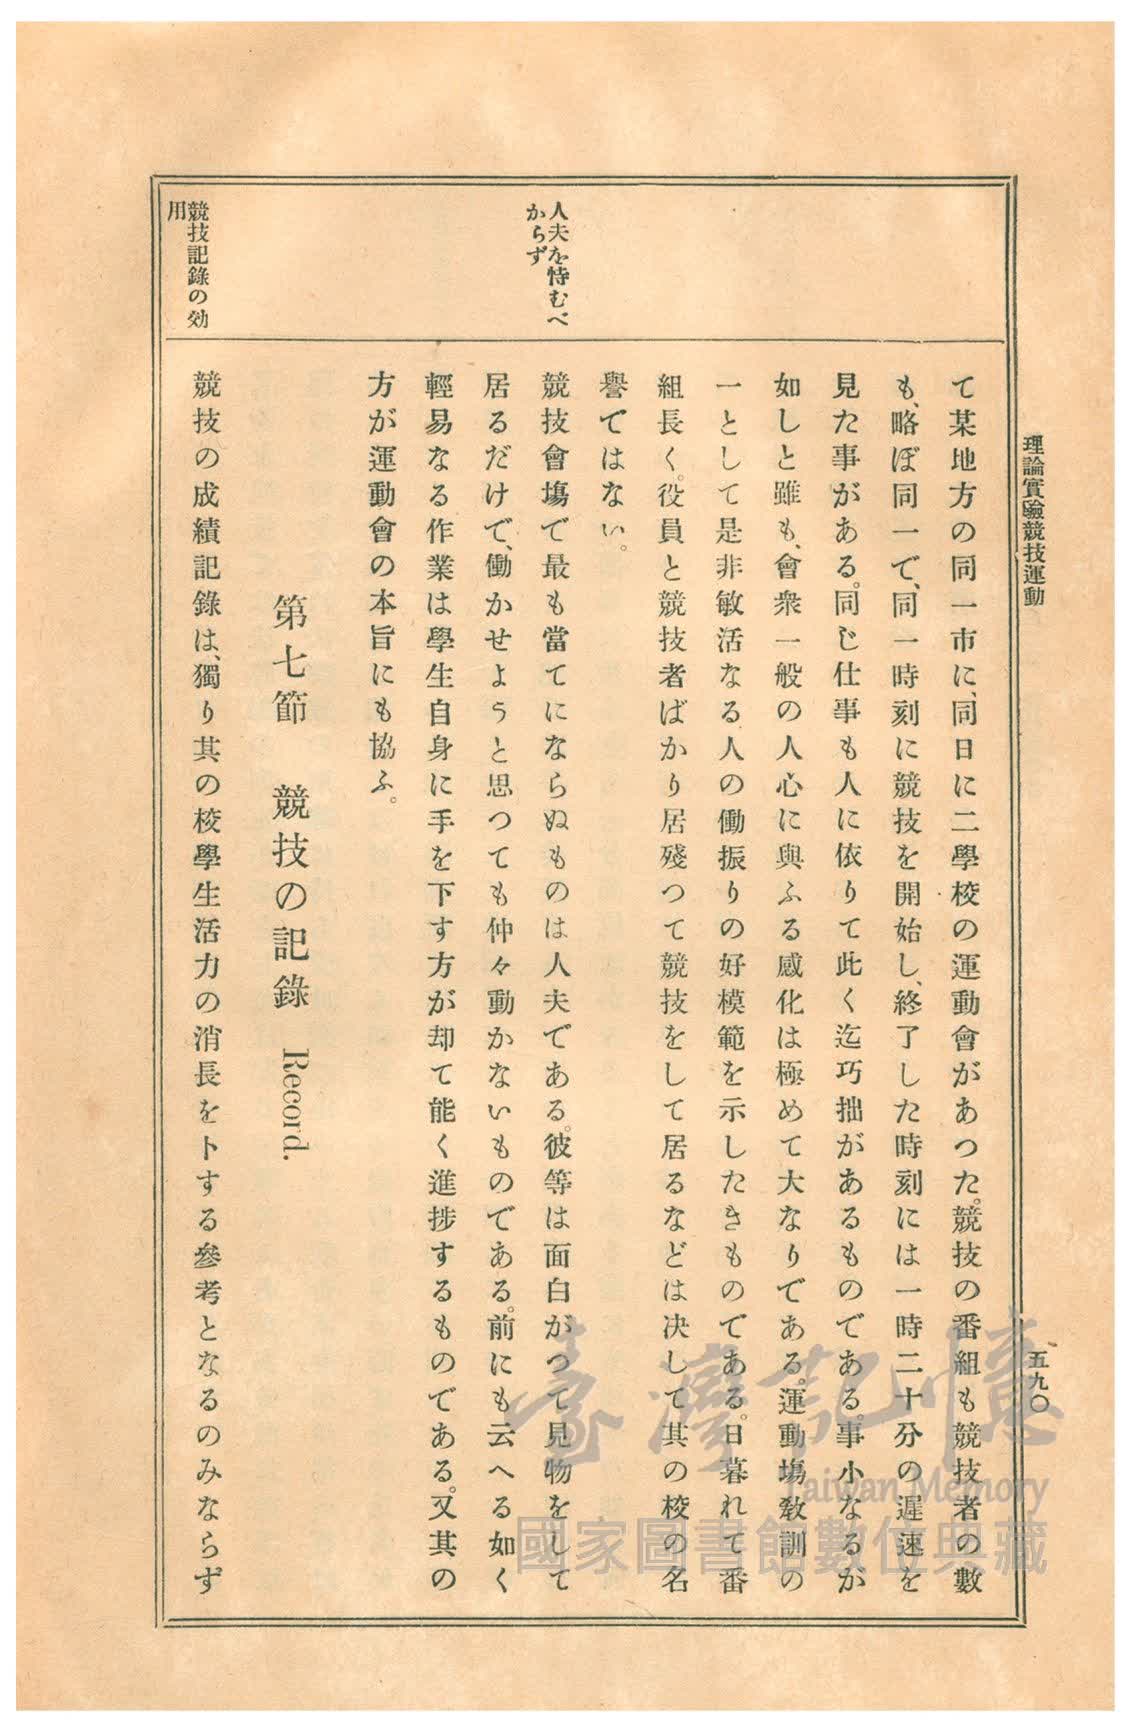 理論實驗競技運動
五九〇
て某地方の同一市に、同日に二學校の運動會があつた。競技の番組も競技者の數
も、略ぼ同一で、同一時刻に競技を開始し、終了した時刻には一時二十分の遲速を
見た事がある。同じ仕事も人に依りて此く迄巧拙があるものである。事小なるが
如しと雖も、會衆一般の人心に與ふる感化は極めて大なりである。運動塲敎訓の
一として是非敏活なる人の働振りの好模範を示したきものである。日暮れて番
組長く。役員と競技者ばかり居殘つて競技をして居るなどは决して其の校の名
譽ではない。
人夫を恃むべ
からず
競技會塲で最も當てにならぬものは人夫である。彼等は面白がつて見物をして
居るだけで、働かせようと思つても仲々動かないものである。前にも云へる如く
輕易なる作業は學生自身に手を下す方が却て能く進捗するものである。又其の
方が運動會の本旨にも協ふ。
第七節　競技の記錄　Record.
競技記錄の効
用
競技の成績記錄は、獨り其の校學生活力の消長を卜する參考となるのみならず
臺灣記憶
Taiwan Memory
國家圖書館數位典藏